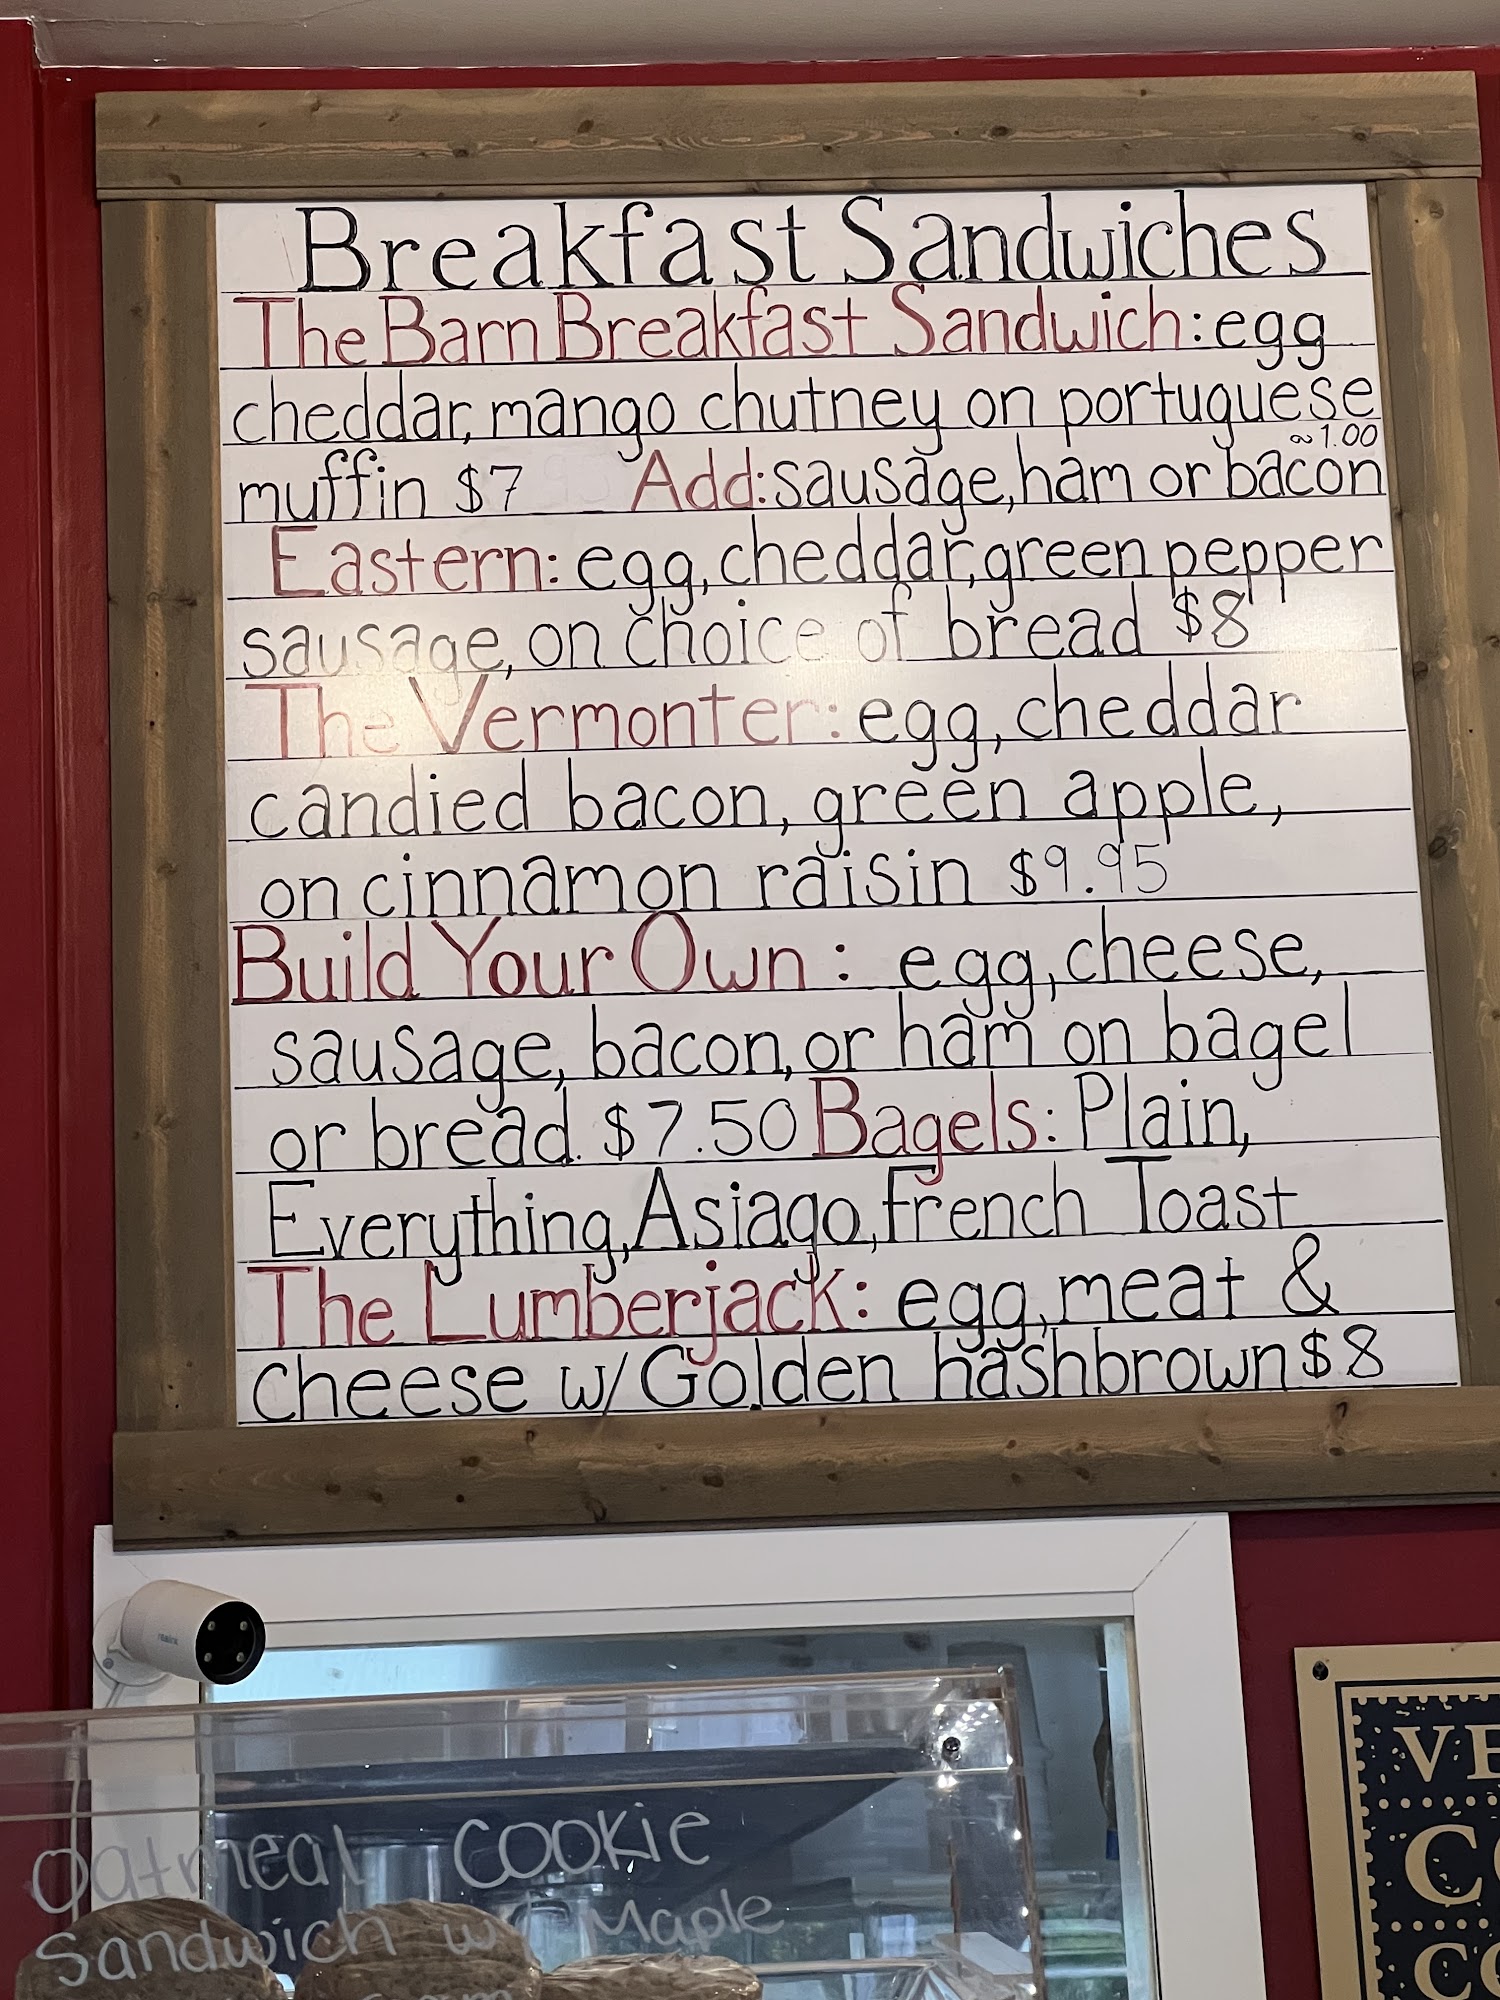 Breakfast Sandwiches
The Barn Breakfast Sandwich: egg
cheddar, mango chutney on portuguese
~1.00
muffin $7 Add: sausage, ham or bacon
Eastern: egg, cheddar, green pepper
sausage, on choice of bread $8
The Vermonter: egg, cheddar
candied bacon, green apple,
on cinnamon raisin $9.95
Build Your Own: egg, cheese,
sausage, bacon, or ham on bagel
or bread. $7.50 Bagels: Plain,
Everything, Asiago, French Toast
The Lumberjack: egg, meat &
cheese w/ Golden hashbrown $8
Oatmeal Cookie
Sandwich w/ Maple